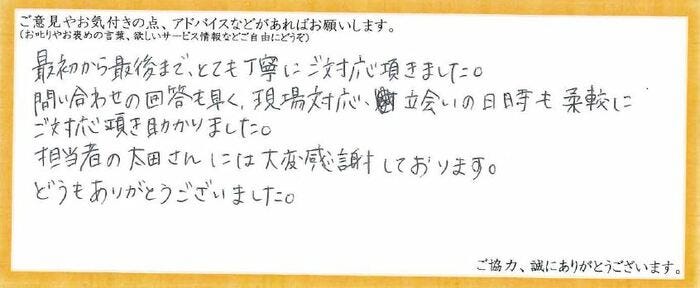 ご意見やお気付きの点、アドバイスなどがあればお願いします。
(お叱りやお褒めの言葉、欲しいサービス情報などご自由にどうぞ)
最初から最後まで、とても丁寧にご対応頂きました。
問い合わせの回答も早く、現場対応、立会いの日時も柔軟に
ご対応頂き助かりました。
担当者の太田さんには大変感謝しております。
どうもありがとうございました。
ご協力、誠にありがとうございます。